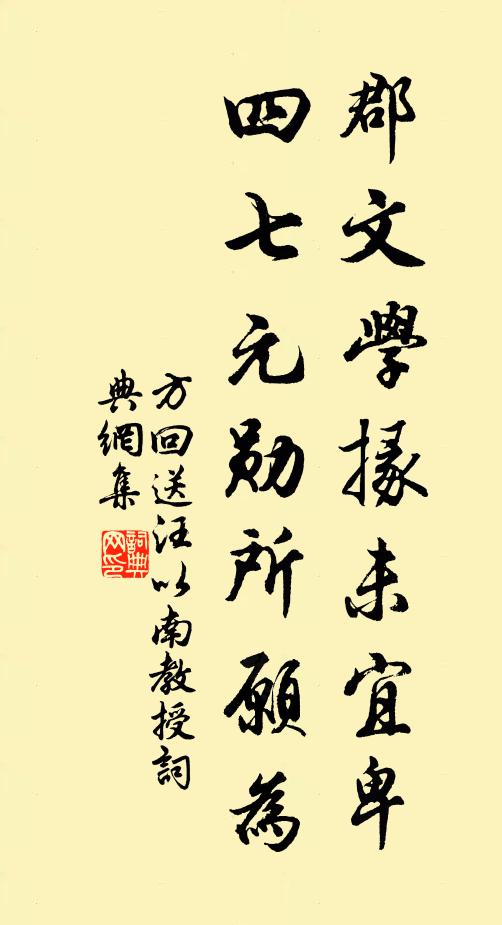 郡文學掾未宜卑
四七元勛所願為
方回送汪以南教授詞
典網集
詞典網印